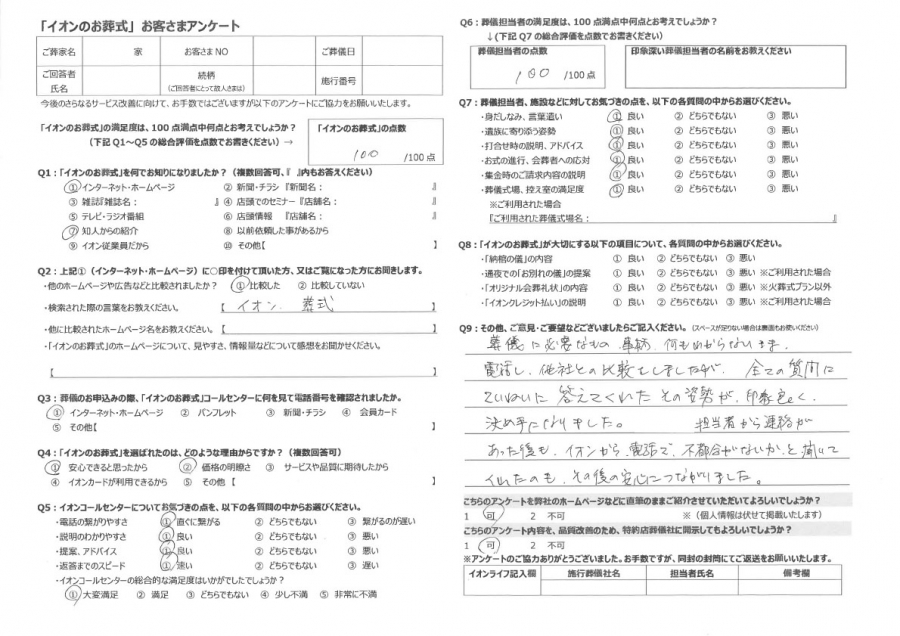 「イオンのお葬式」お客さまアンケート
ご葬家名 家 お客さまNO ご葬儀日
ご回答者氏名 続柄(ご回答者にとって故人さまは) 施行番号
今後のさらなるサービス改善に向けて、お手数ではございますが以下のアンケートにご協力をお願いいたします。
「イオンのお葬式」の満足度は、100点満点中何点とお考えでしょうか?
(下記Q1~Q5の総合評価を点数でお書きください)→
「イオンのお葬式」の点数
100 /100点
Q1:「イオンのお葬式」を何でお知りになりましたか?(複数回答可、『 』内もお答えください)
① インターネット・ホームページ ② 新聞・チラシ『新聞名: 』
③ 雑誌『雑誌名: 』 ④ 店頭でのセミナー『店舗名: 』
⑤ テレビ・ラジオ番組 ⑥ 店頭情報 『店舗名: 』
⑦ 知人からの紹介 ⑧ 以前依頼した事があるから
⑨ イオン従業員だから ⑩ その他【 】
Q2:上記①(インターネット・ホームページ)に○印を付けて頂いた方、又はご覧になった方にお聞きします。
・他のホームページや広告などと比較されましたか? ① 比較した ② 比較していない
・検索された際の言葉をお教えください。 【 イオン. 葬式 】
・他に比較されたホームページ名をお教えください。【 】
・「イオンのお葬式」のホームページについて、見やすさ、情報量などについて感想をお聞かせください。
【 】
Q3:葬儀のお申込みの際、「イオンのお葬式」コールセンターに何を見て電話番号を確認されましたか。
① インターネット・ホームページ ② パンフレット ③ 新聞・チラシ ④ 会員カード
⑤ その他【 】
Q4:「イオンのお葬式」を選ばれたのは、どのような理由からですか?(複数回答可)
① 安心できると思ったから ② 価格の明瞭さ ③ サービスや品質に期待したから
④ イオンカードが利用できるから ⑤ その他 【 】
Q5:イオンコールセンターについてお気づきの点を、以下の各質問の中からお選びください。
・電話の繋がりやすさ ① 直ぐに繋がる ② どちらでもない ③ 繋がるのが遅い
・説明のわかりやすさ ① 良い ② どちらでもない ③ 悪い
・提案、アドバイス ① 良い ② どちらでもない ③ 悪い
・返答までのスピード ① 速い ② どちらでもない ③ 遅い
・イオンコールセンターの総合的な満足度はいかがでしたでしょうか?
① 大変満足 ② 満足 ③ どちらでもない ④ 少し不満 ⑤ 非常に不満
Q6:葬儀担当者の満足度は、100点満点中何点とお考えでしょうか?
↓(下記Q7の総合評価を点数でお書きください)
葬儀担当者の点数
100 /100点
印象深い葬儀担当者の名前をお教えください
Q7:葬儀担当者、施設などに対してお気づきの点を、以下の各質問の中からお選びください。
・身だしなみ、言葉遣い ① 良い ② どちらでもない ③ 悪い
・遺族に寄り添う姿勢 ① 良い ② どちらでもない ③ 悪い
・打合せ時の説明、アドバイス ① 良い ② どちらでもない ③ 悪い
・お式の進行、会葬者への応対 ① 良い ② どちらでもない ③ 悪い
・集金時のご請求内容の説明 ① 良い ② どちらでもない ③ 悪い
・葬儀式場、控え室の満足度 ① 良い ② どちらでもない ③ 悪い
※ご利用された場合
『ご利用された葬儀式場名: 』
Q8:「イオンのお葬式」が大切にする以下の項目について、各質問の中からお選びください。
・「納棺の儀」の内容 ① 良い ② どちらでもない ③ 悪い
・通夜での「お別れの儀」の提案 ① 良い ② どちらでもない ③ 悪い ※ご利用された場合
・「オリジナル会葬礼状」の内容 ① 良い ② どちらでもない ③ 悪い ※火葬式プラン以外
・「イオンクレジット払い」の説明 ① 良い ② どちらでもない ③ 悪い ※ご利用された場合
Q9:その他、ご意見・ご要望などございましたらご記入ください。(スペースが足りない場合は裏面もお使いください)
葬儀に必要なもの、事柄、何もわからないまま、
電話し、他社との比較もしましたが、全ての質問に
ていねいに答えてくれたその姿勢が、印象良く、
決め手になりました。 担当者から連絡が
あった後も、イオンから、電話で、不都合がないか、と聞いて
くれたのも、その後の安心につながりました。
こちらのアンケートを弊社のホームページなどに直筆のままご紹介させていただいてよろしいでしょうか?
1 可 2 不可 ※(個人情報は伏せて掲載いたします)
こちらのアンケート内容を、品質改善のため、特約店葬儀社に開示してもよろしいでしょうか?
1 可 2 不可
※アンケートのご協力ありがとうございました。お手数ですが、同封の封筒にてご返送をお願いいたします。
イオンライフ記入欄 施行葬儀社名 担当者氏名 備考欄